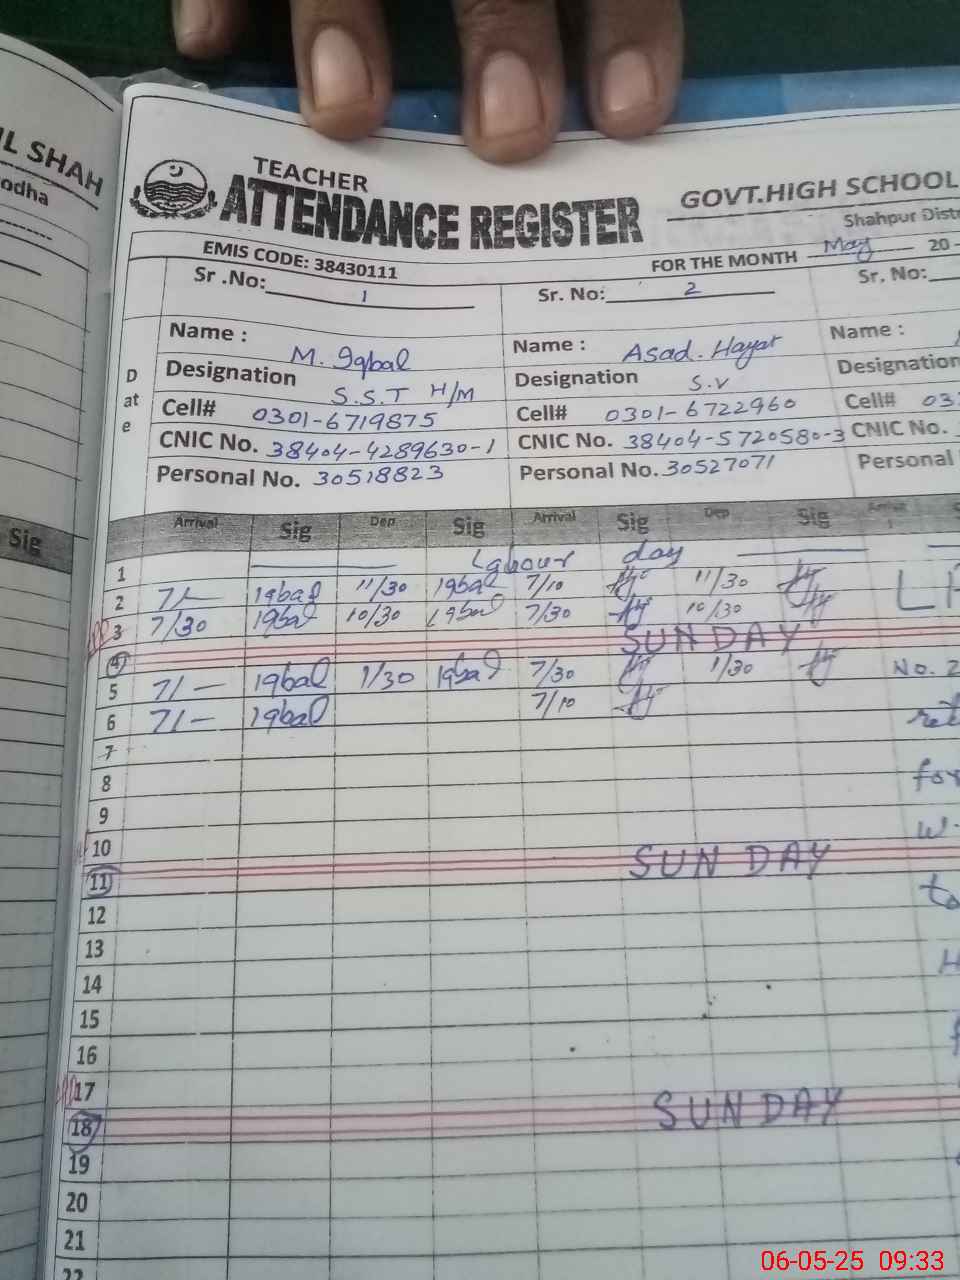 IL SHAH
odha
Sig
TEACHER
ATTENDANCE REGISTER
GOVT.HIGH SCHOOL
Shahpur Distr
EMIS CODE: 38430111
FOR THE MONTH May 20-
Sr .No: 1 Sr. No: 2 Sr. No:
Name : M. Iqbal Name : Asad. Hayat Name :
Designation S.S.T H/M Designation S.V Designation
Cell# 0301-6719875 Cell# 0301-6722960 Cell# 03
CNIC No. 38404-4289630-1 CNIC No. 38404-5720580-3 CNIC No.
Personal No. 30518823 Personal No. 30527071 Personal
Date
Arrival Sig Dep Sig Arrival Sig Dep Sig Arrival
1 Labour day
2 7/- Iqbal 11/30 Iqbal 7/10 11/30
3 7/30 Iqbal 10/30 Iqbal 7/30 10/30
4 SUNDAY
5 7/- Iqbal 1/30 Iqbal 7/30 1/30 No. 2
6 7/- Iqbal 7/10
7
8 for
9
10 w-
11 SUNDAY
12 to
13
14 H
15
16
17
18 SUNDAY
19
20
21
22
06-05-25 09:33